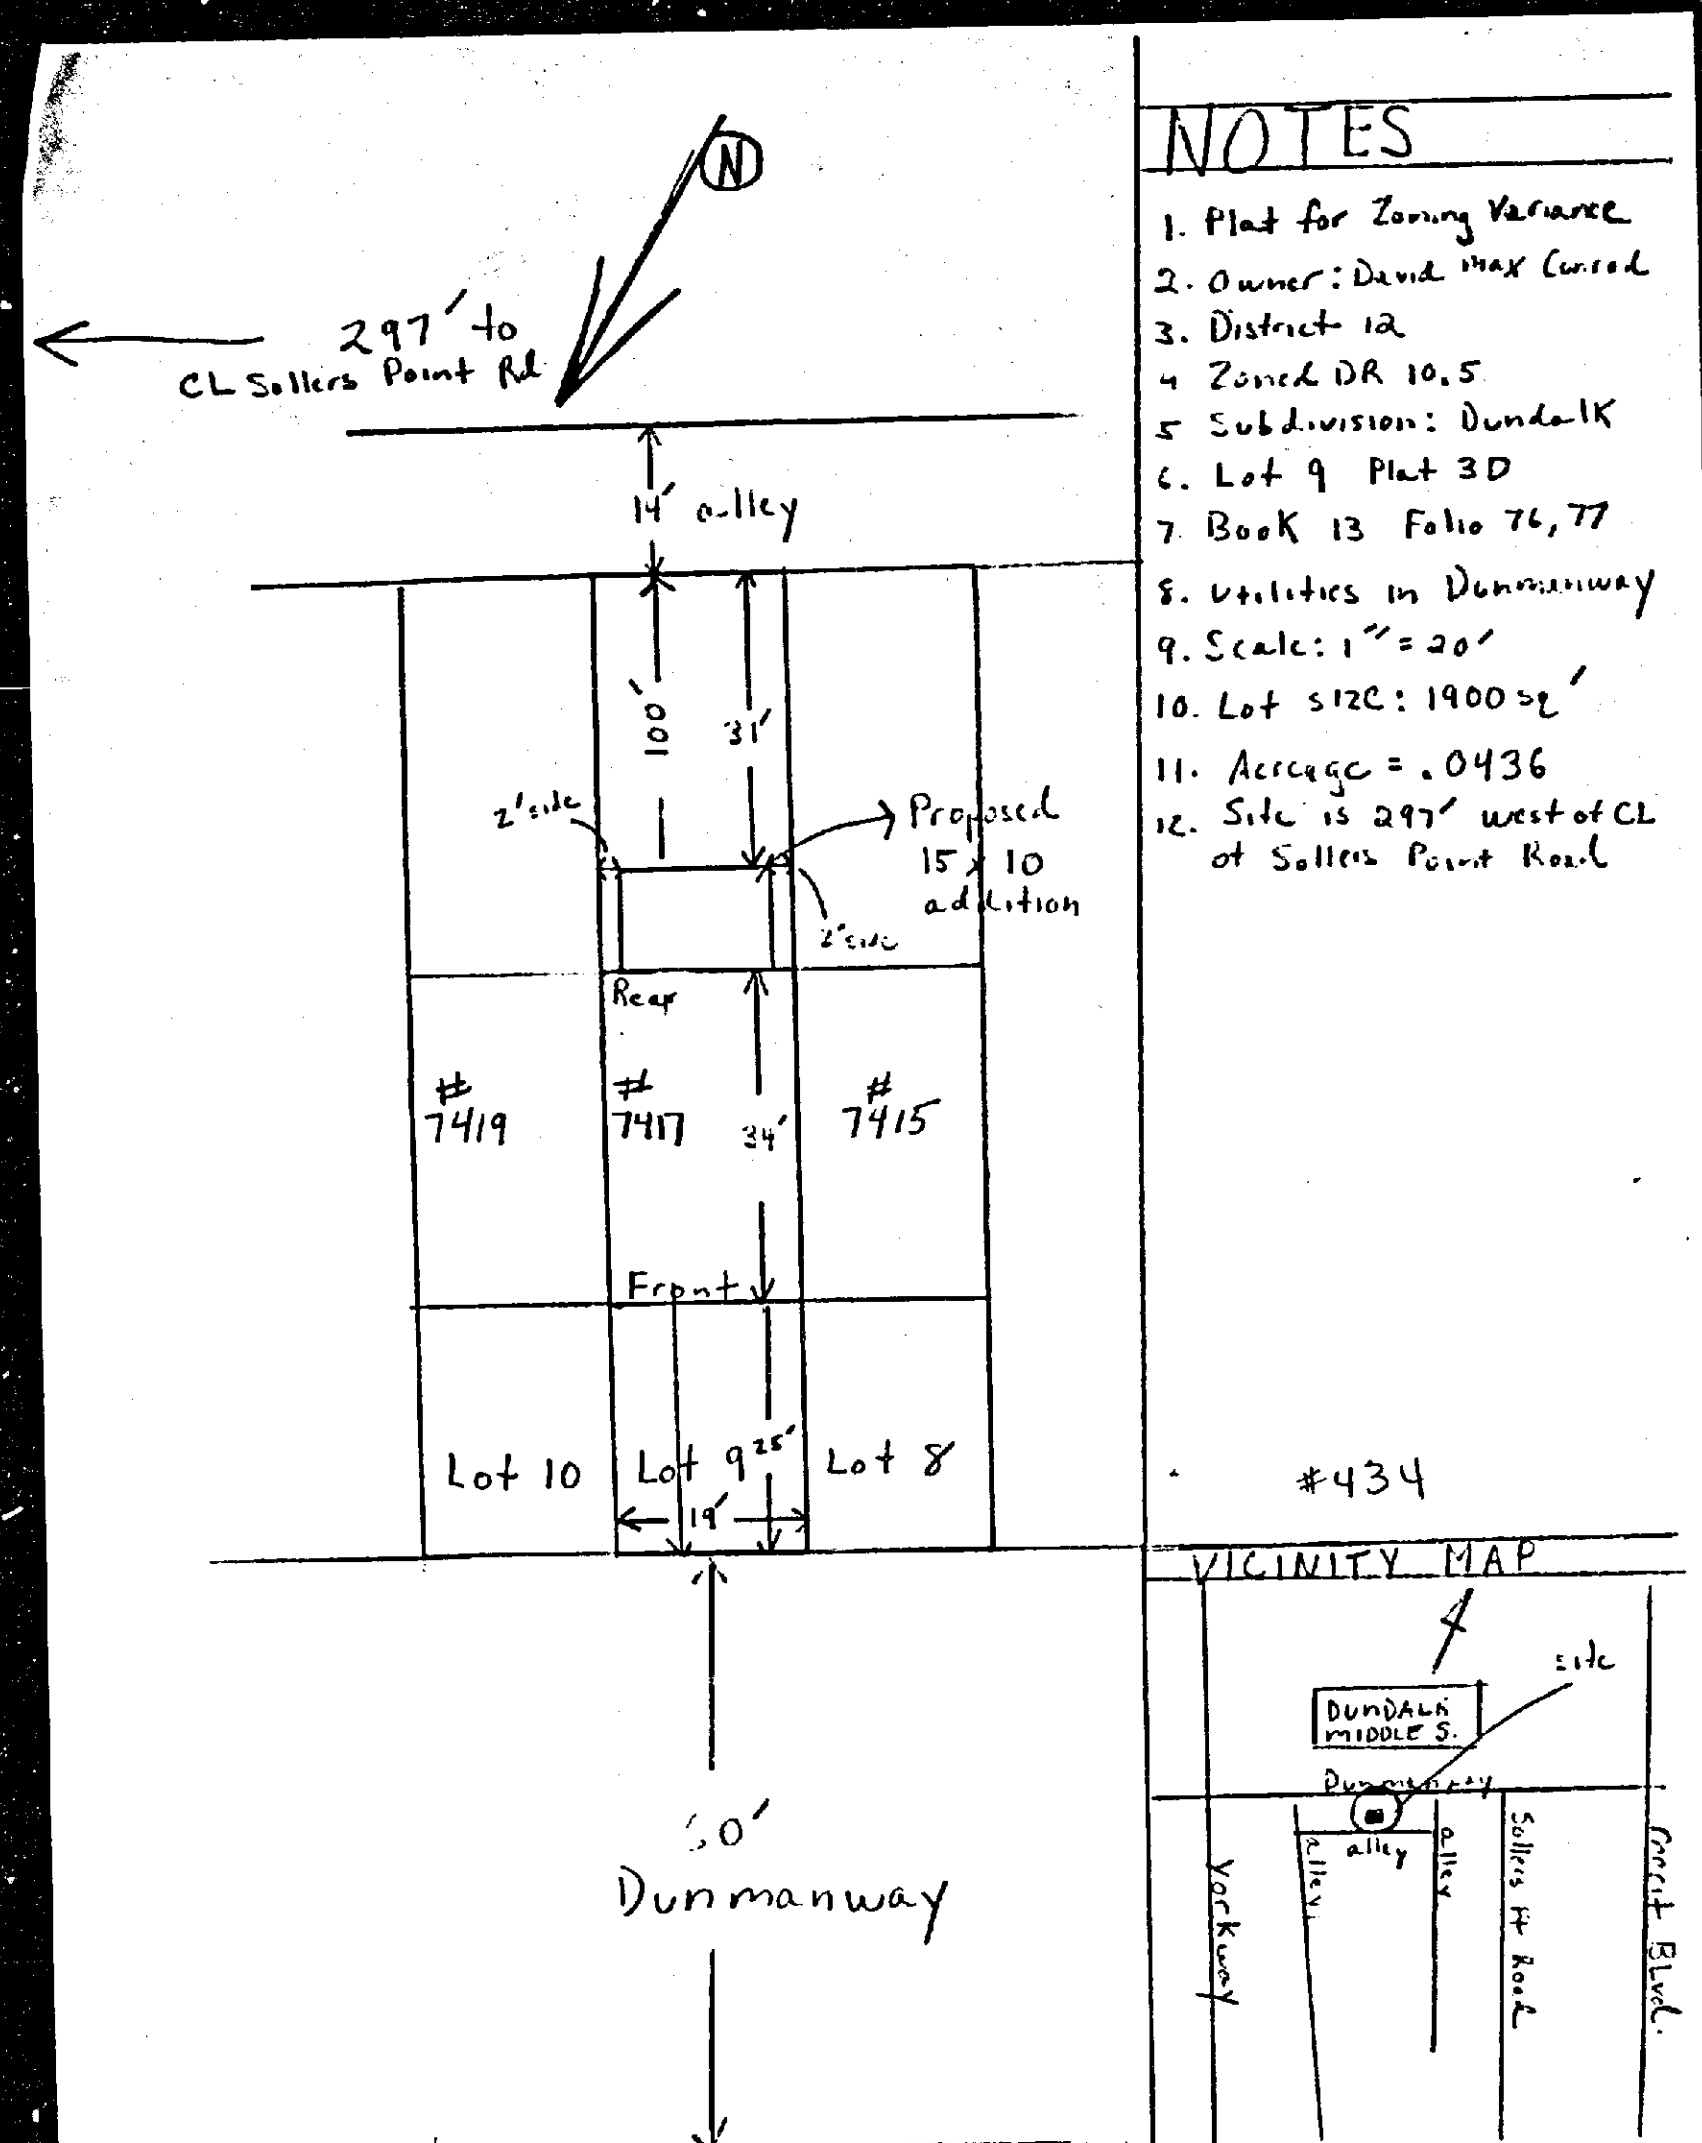 N
297' to
CL Sollers Point Rd
14' alley
100'
31'
2' side
Proposed
15 x 10
addition
2' side
Rear
#
7419
#
7417
34'
#
7415
Front
Lot 10
Lot 9
25'
Lot 8
19'
0'
Dunmanway
NOTES
1. Plat for Zoning Variance
2. Owner: David Max Conrad
3. District 12
4 Zoned DR 10.5
5 Subdivision: Dundalk
6. Lot 9 Plat 3D
7. Book 13 Folio 76, 77
8. Utilities in Dunmanway
9. Scale: 1" = 20'
10. Lot size: 1900 sq '
11. Acreage = .0436
12. Site is 297' west of CL
of Sollers Point Road
#434
VICINITY MAP
site
DUNDALK
MIDDLE S.
Dunmanway
alley
alley
alley
Yorkway
Sollers Pt Road
Merit BLvd.